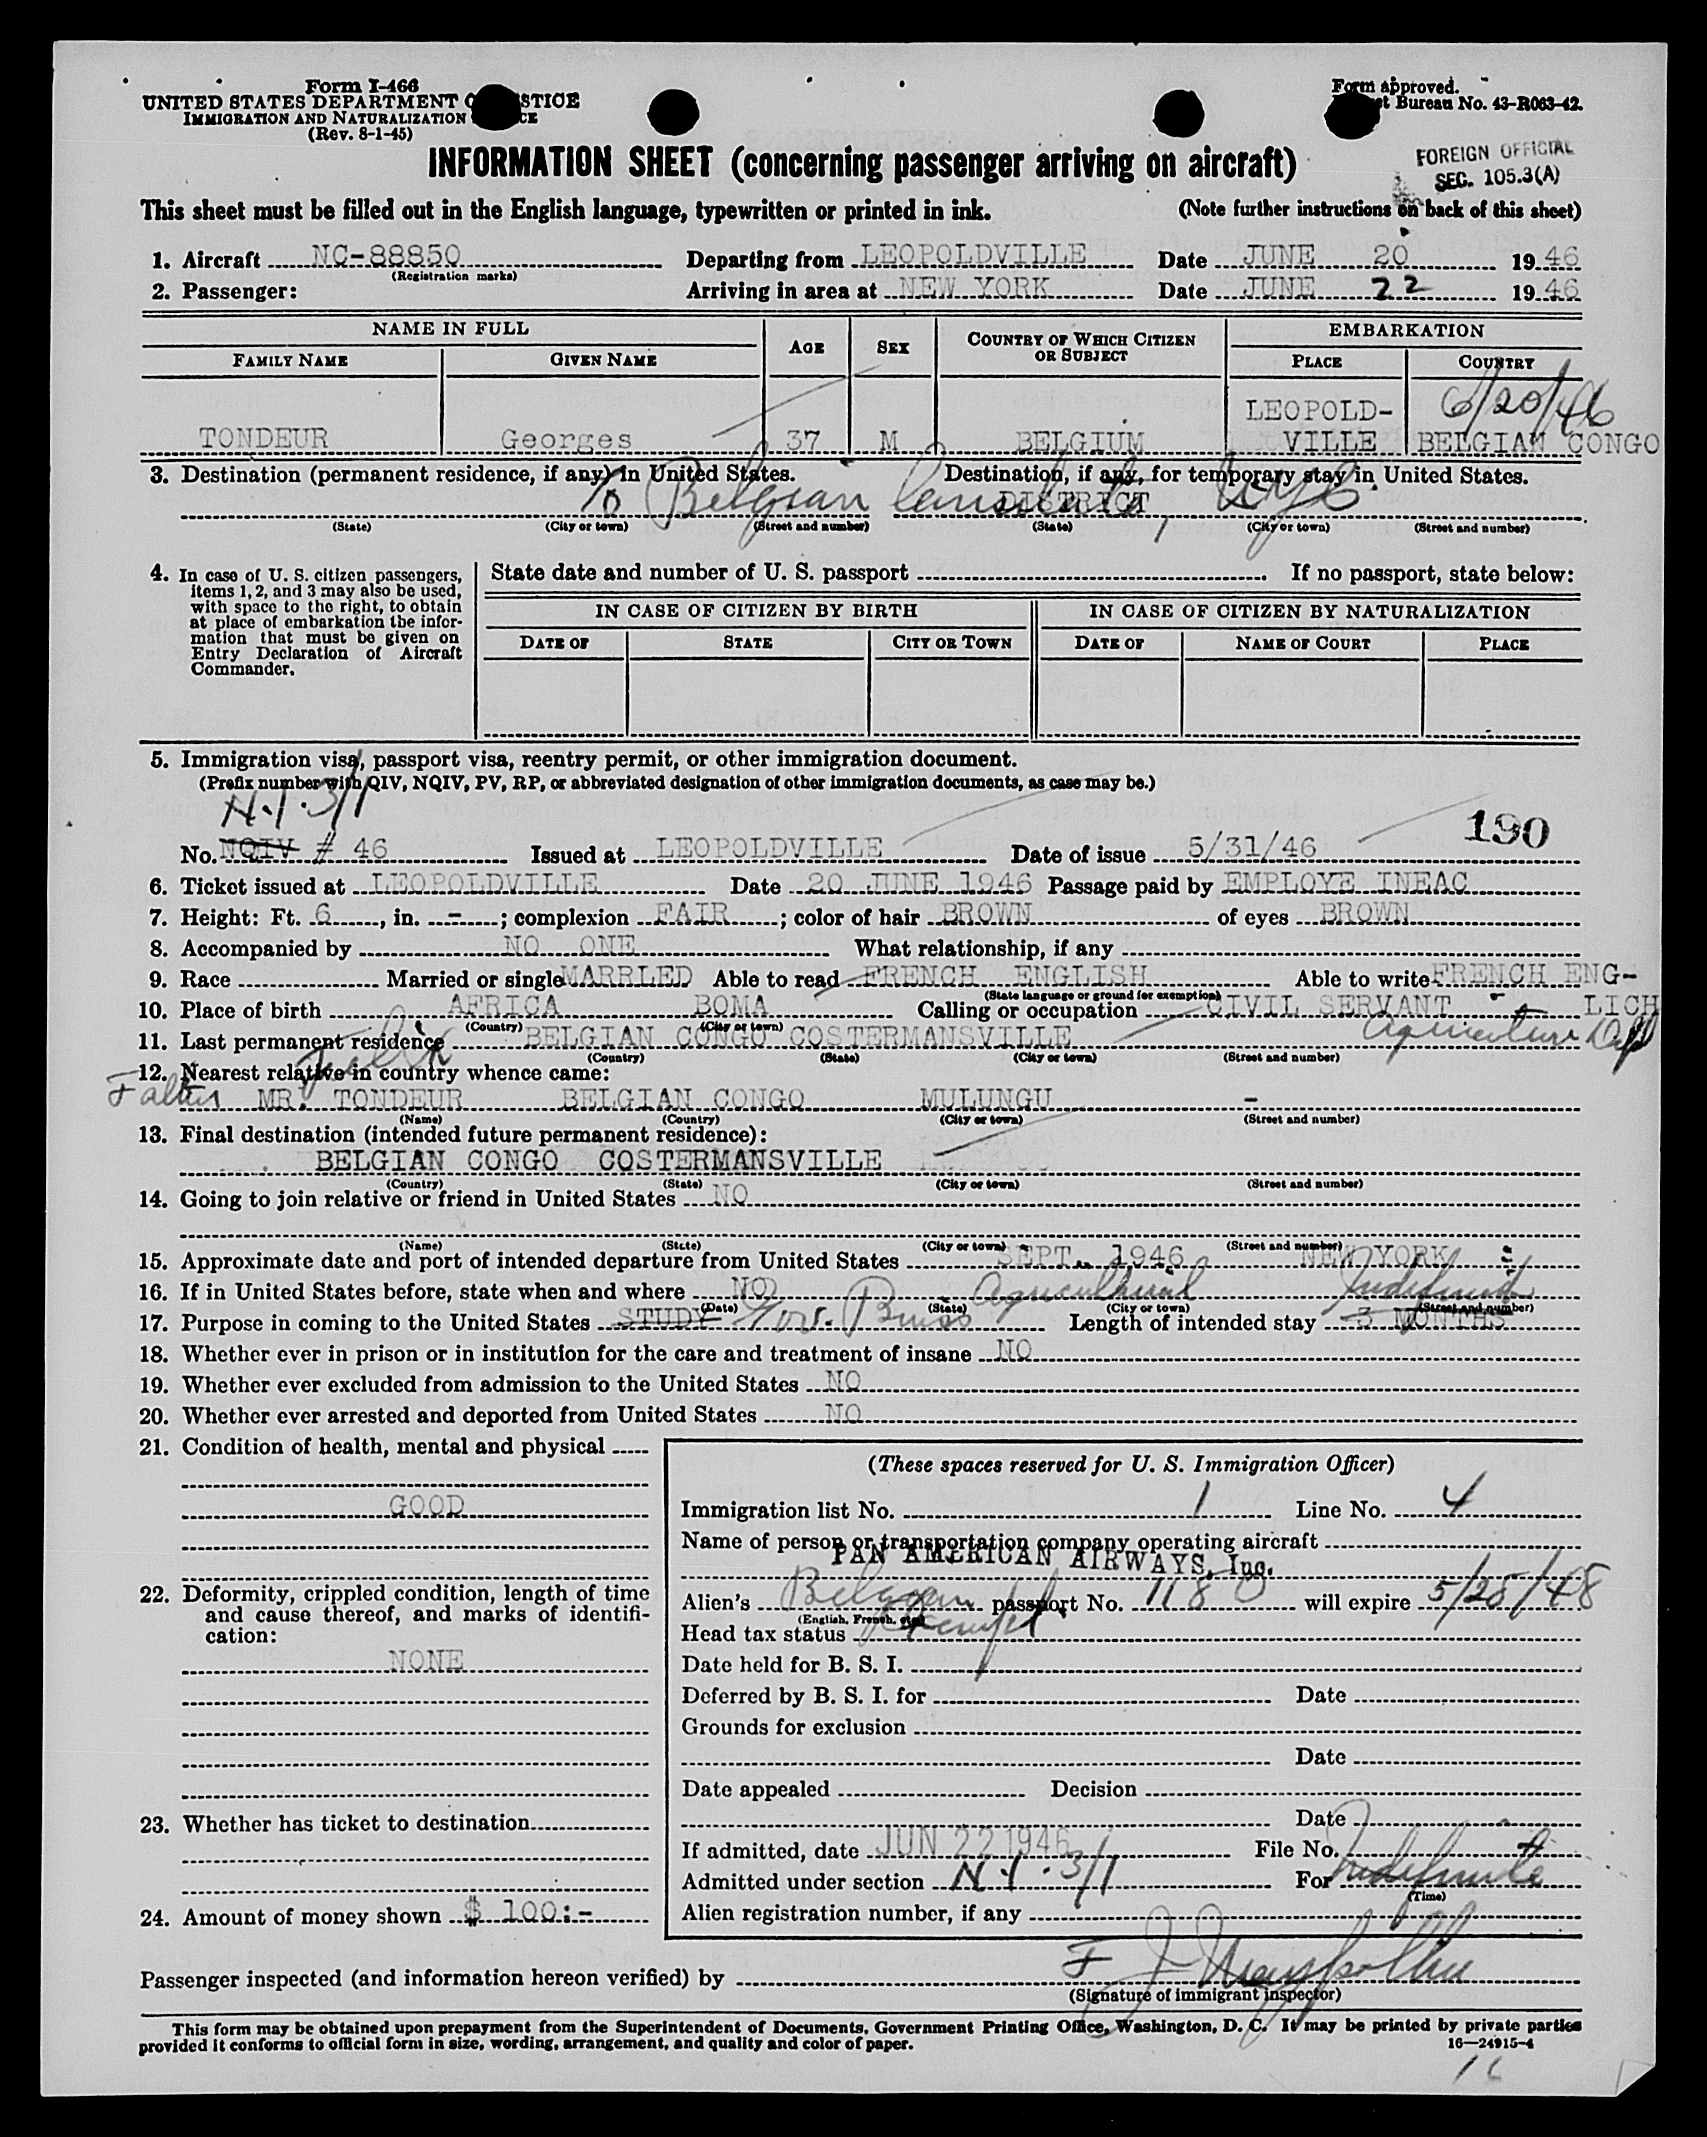 Form I-466
UNITED STATES DEPARTMENT STICE
IMMIGRATION AND NATURALIZATION CE
(Rev. 8-1-45)
Form approved.
t Bureau No. 43-R063-42.
INFORMATION SHEET (concerning passenger arriving on aircraft)
FOREIGN OFFICIAL
SEC. 105.3(A)
This sheet must be filled out in the English language, typewritten or printed in ink. (Note further instructions on back of this sheet)
1. Aircraft NC-88850 Departing from LEOPOLDVILLE Date JUNE 20 1946
(Registration marks)
2. Passenger: Arriving in area at NEW YORK Date JUNE 22 1946
NAME IN FULL AGE SEX COUNTRY OF WHICH CITIZEN OR SUBJECT EMBARKATION
FAMILY NAME GIVEN NAME PLACE COUNTRY
LEOPOLD- 6/20/46
TONDEUR Georges 37 M BELGIUM VILLE BELGIAN CONGO
3. Destination (permanent residence, if any) in United States. Destination, if any, for temporary stay in United States.
% Belgian Consulate, NYC. DISTRICT
(State) (City or town) (Street and number) (State) (City or town) (Street and number)
4. In case of U. S. citizen passengers, items 1, 2, and 3 may also be used, with space to the right, to obtain at place of embarkation the information that must be given on Entry Declaration of Aircraft Commander.
State date and number of U. S. passport If no passport, state below:
IN CASE OF CITIZEN BY BIRTH IN CASE OF CITIZEN BY NATURALIZATION
DATE OF STATE CITY OR TOWN DATE OF NAME OF COURT PLACE
5. Immigration visa, passport visa, reentry permit, or other immigration document.
(Prefix number with QIV, NQIV, PV, RP, or abbreviated designation of other immigration documents, as case may be.)
3/1
190
No. NQIV # 46 Issued at LEOPOLDVILLE Date of issue 5/31/46
6. Ticket issued at LEOPOLDVILLE Date 20 JUNE 1946 Passage paid by EMPLOYE INEAC
7. Height: Ft. 6, in. -; complexion FAIR; color of hair BROWN of eyes BROWN
8. Accompanied by NO ONE What relationship, if any
9. Race Married or single MARRLED Able to read FRENCH ENGLISH Able to write FRENCH ENG-
(State language or ground for exemption)
10. Place of birth AFRICA BOMA Calling or occupation CIVIL SERVANT - LICH
(Country) (City or town) Agriculture Dept
11. Last permanent residence BELGIAN CONGO COSTERMANSVILLE
(Country) (State) (City or town) (Street and number)
12. Nearest relative in country whence came:
Father MR. TONDEUR BELGIAN CONGO MULUNGU -
(Name) (Country) (City or town) (Street and number)
13. Final destination (intended future permanent residence):
BELGIAN CONGO COSTERMANSVILLE
(Country) (State) (City or town) (Street and number)
14. Going to join relative or friend in United States NO
(Name) (State) (City or town) (Street and number)
15. Approximate date and port of intended departure from United States SEPT. 1946 NEW YORK
16. If in United States before, state when and where NO
(Date) (State) (City or town) (Street and number)
Agricultural Indefinite
17. Purpose in coming to the United States STUDY Gov. Buiss Length of intended stay 3 MONTHS
18. Whether ever in prison or in institution for the care and treatment of insane NO
19. Whether ever excluded from admission to the United States NO
20. Whether ever arrested and deported from United States NO
21. Condition of health, mental and physical
GOOD
22. Deformity, crippled condition, length of time and cause thereof, and marks of identification:
NONE
23. Whether has ticket to destination
24. Amount of money shown $ 100:-
(These spaces reserved for U. S. Immigration Officer)
Immigration list No. 1 Line No. 4
Name of person or transportation company operating aircraft
PAN AMERICAN AIRWAYS, Inc.
Alien's Belgian passport No. 1180 will expire 5/25/48
(English, French, etc.)
Head tax status Exempt
Date held for B. S. I.
Deferred by B. S. I. for Date
Grounds for exclusion
Date
Date appealed Decision
Date
If admitted, date JUN 22 1946 File No.
Admitted under section 3/1 For Indefinite
(Time)
Alien registration number, if any
Passenger inspected (and information hereon verified) by F J
(Signature of immigrant inspector)
This form may be obtained upon prepayment from the Superintendent of Documents, Government Printing Office, Washington, D. C. It may be printed by private parties
provided it conforms to official form in size, wording, arrangement, and quality and color of paper. 16—24915-4